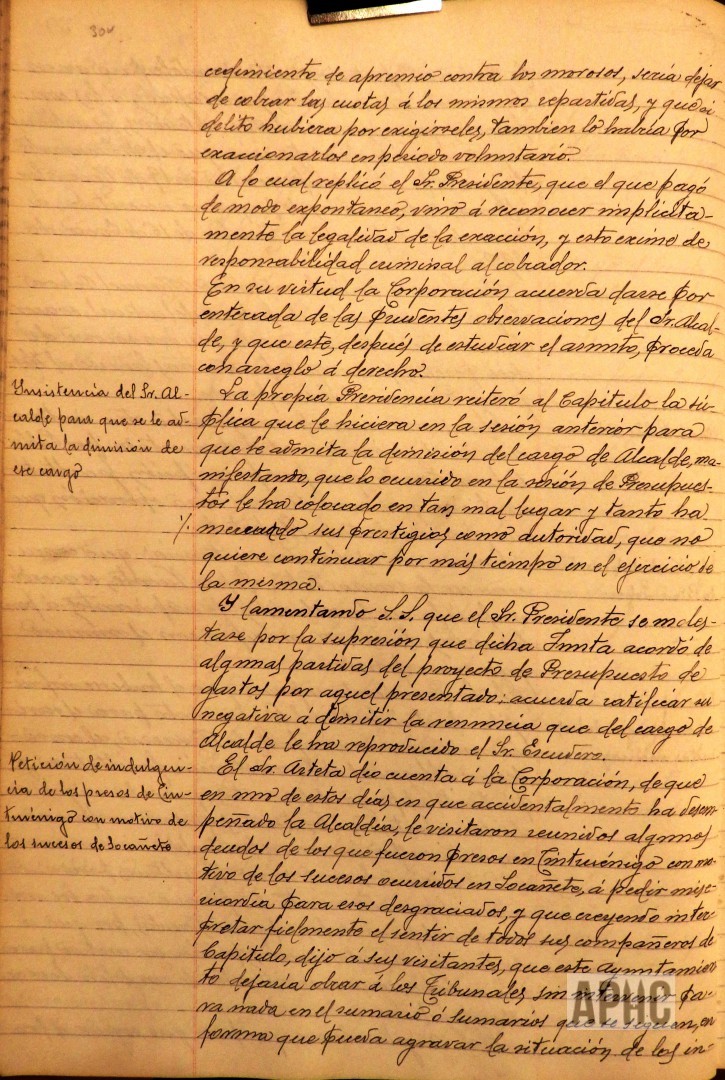 300
cedimiento de apremio contra los morosos, sería dejar
de cobrar las cuotas á los mismos repartidas, y que si
delito hubiera por exigírseles, tambien lo habría por
exaccionarlos en período voluntario.
A lo cual replicó el Sr. Presidente, que el que pagó
de modo expontaneo, vino á reconocer implícita-
mente la legalidad de la exacción, y esto exime de
responsabilidad criminal al cobrador.
En su virtud la Corporación acuerda darse por
enterada de las prudentes observaciones del Sr. Alcal-
de, y que este, después de estudiar el asunto, proceda
con arreglo á derecho.
Insistencia del Sr. Al-
calde para que se le ad-
mita la dimisión de
ese cargo
La propia Presidencia reiteró al Capitulo la sú-
plica que le hiciera en la sesión anterior para
que se admita la dimisión del cargo de Alcalde, ma-
nifestando, que lo ocurrido en la sesión de Presupues-
tos le ha colocado en tan mal lugar y tanto ha
mercado sus prestigios como autoridad, que no
quiere continuar por más tiempo en el ejercicio de
la misma.
Y lamentando S.S. que el Sr. Presidente se moles-
tase por la supresión que dicha Junta acordó de
algunas partidas del proyecto de Presupuesto de
gastos por aquel presentado; acuerda ratificar su
negativa á admitir la renuncia que del cargo de
Alcalde le ha reproducido el Sr. Escudero.
Petición de indulgen-
cia de los presos de Cin-
truénigo con motivo de
los sucesos de Socañeto
El Sr. Arteta dió cuenta á la Corporación, de que
en uno de estos días en que accidentalmente ha desem-
peñado la Alcaldía, le visitaron reunidos algunos
deudos de los que fueron presos en Cintruénigo con mo-
tivo de los sucesos ocurridos en Socañeto, á pedir mise-
ricordia para esos desgraciados, y que creyendo inter-
pretar fielmente el sentir de todos sus compañeros de
Capitulo, dijo á sus visitantes, que este Ayuntamien-
to dejaría obrar á los Tribunales sin intervenir pa-
ra nada en el sumario ó sumarios que se siguen, en
forma que pueda agravar la situación de los in-
APHC